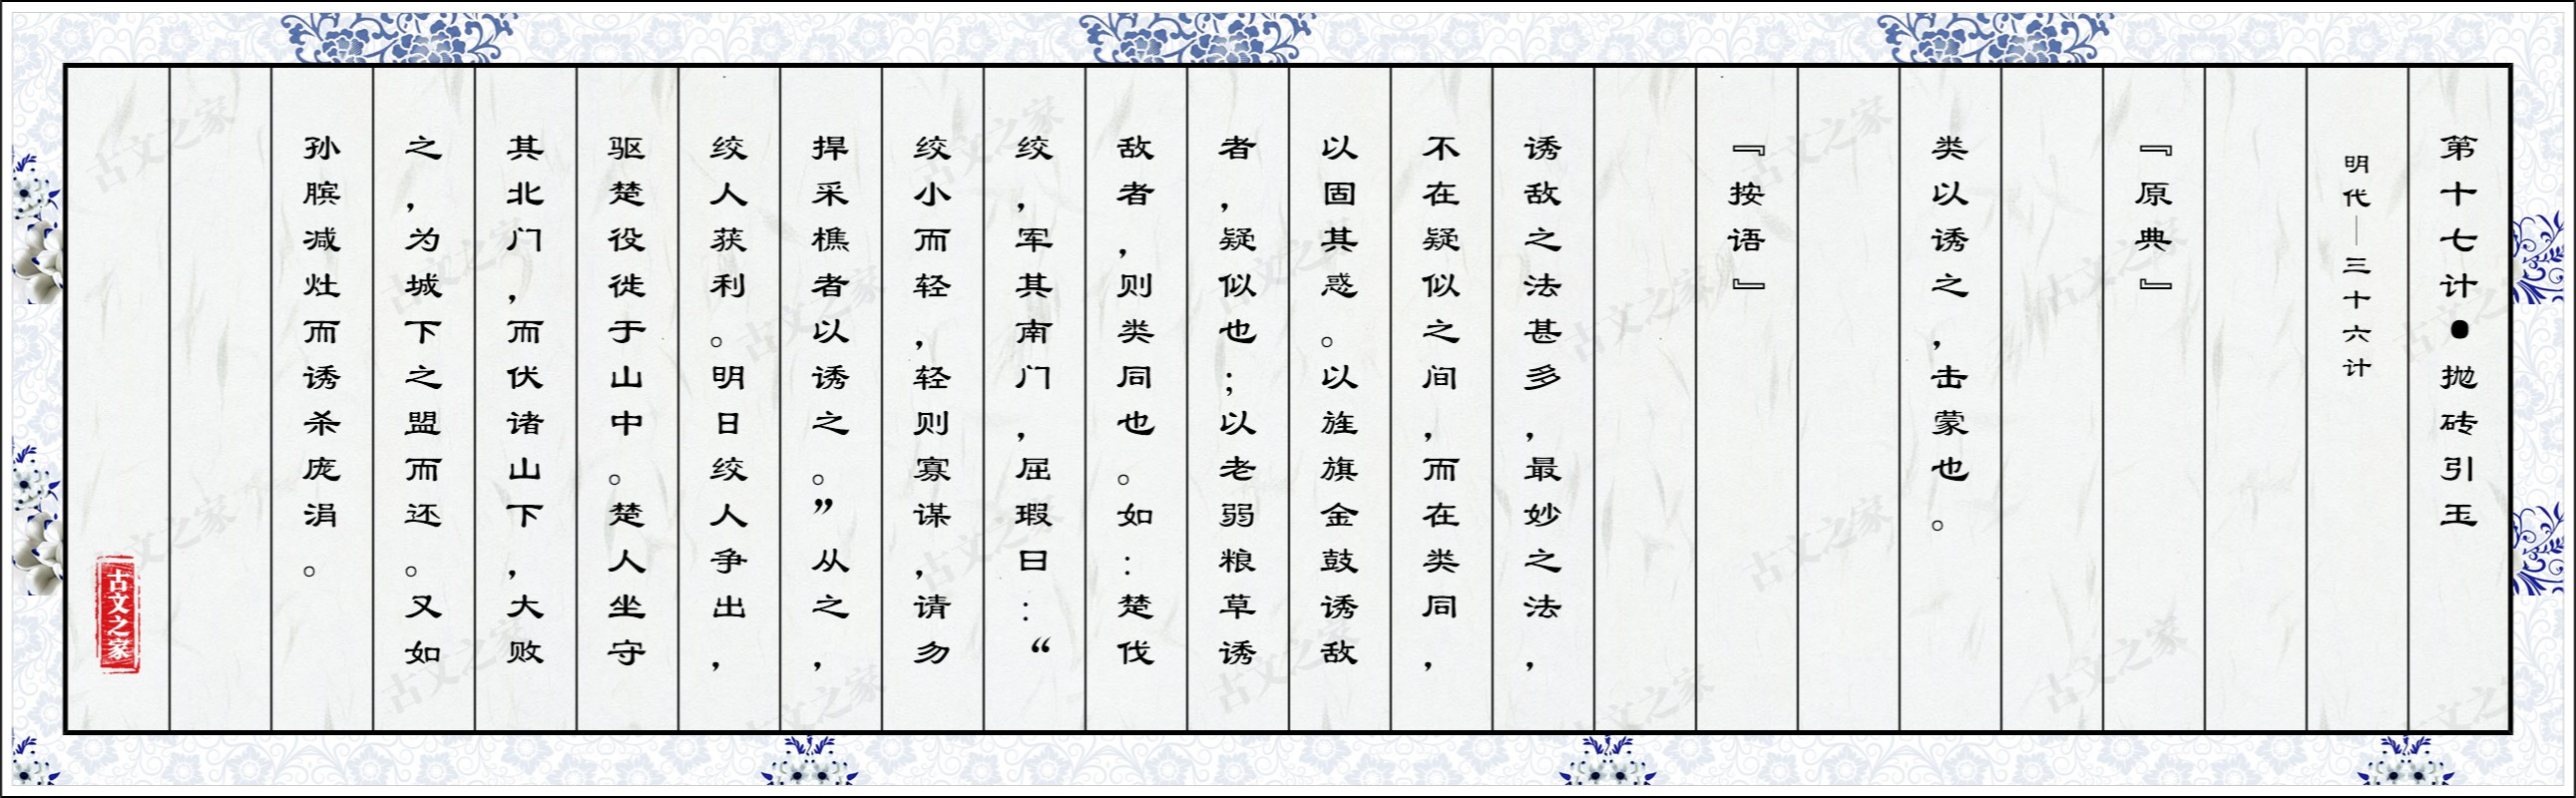 第十七计●抛砖引玉
明代——三十六计
『原典』
类以诱之，击蒙也。
『按语』
诱敌之法甚多，最妙之法，
不在疑似之间，而在类同，
以固其惑。以旌旗金鼓诱敌
者，疑似也；以老弱粮草诱
敌者，则类同也。如：楚伐
绞，军其南门，屈瑕曰：“
绞小而轻，轻则寡谋，请勿
捍采樵者以诱之。”从之，
绞人获利。明日绞人争出，
驱楚役徙于山中。楚人坐守
其北门，而伏诸山下，大败
之，为城下之盟而还。又如
孙膑减灶而诱杀庞涓。
古文之家